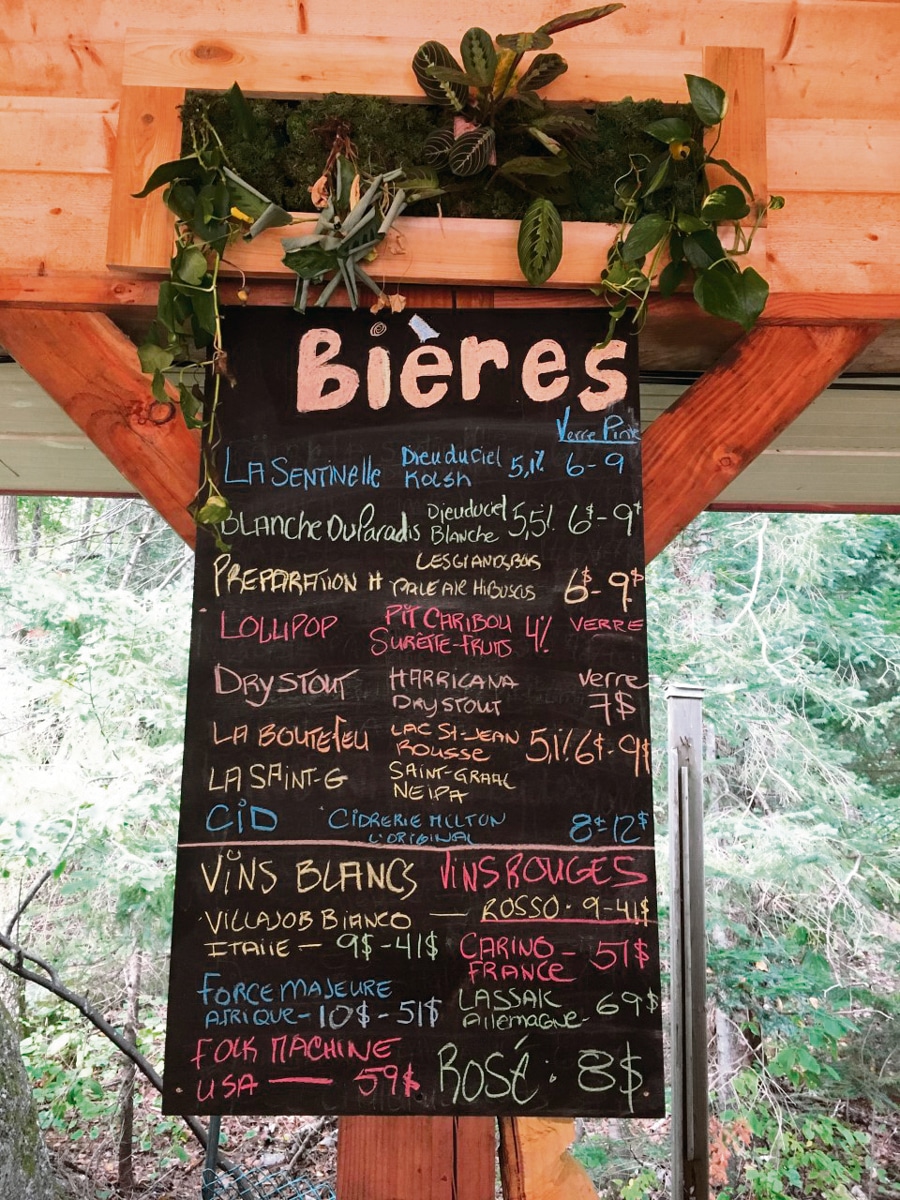 Bières
Verre Pinte
LA SENTINELLE Dieu du Ciel 5,1% 6-9
Kolsh
BLANCHE DU Paradis Dieu du Ciel 5,5% 6$-9$
Blanche
LES GRANDS BOIS
PREPARATION H PALE ALE HIBUSCUS 6$-9$
LOLLIPOP PIT CARIBOU 4% VERRE
SURETTE-FRUITS
DRY STOUT HARRICANA verre
DRY STOUT 7$
LA BOUTEFEU LAC ST-JEAN 5,1% 6$-9$
ROUSSE
LA SAINT-G SAINT-GRAAL
NEIPA
CiD CIDRERIE MILTON 8$ 12$
L'ORIGINAL
ViNS BLANCS ViNS ROUGES
VILLAJOB BIANCO — ROSSO - 9-41$
ITALIE — 9$-41$ CARINO - 51$
FRANCE
FORCE MAJEURE LASSAK 69$
AFRIQUE - 10$ - 51$ Allemagne -
FOLK MACHINE
USA — 59$ ROSÉ: 8$